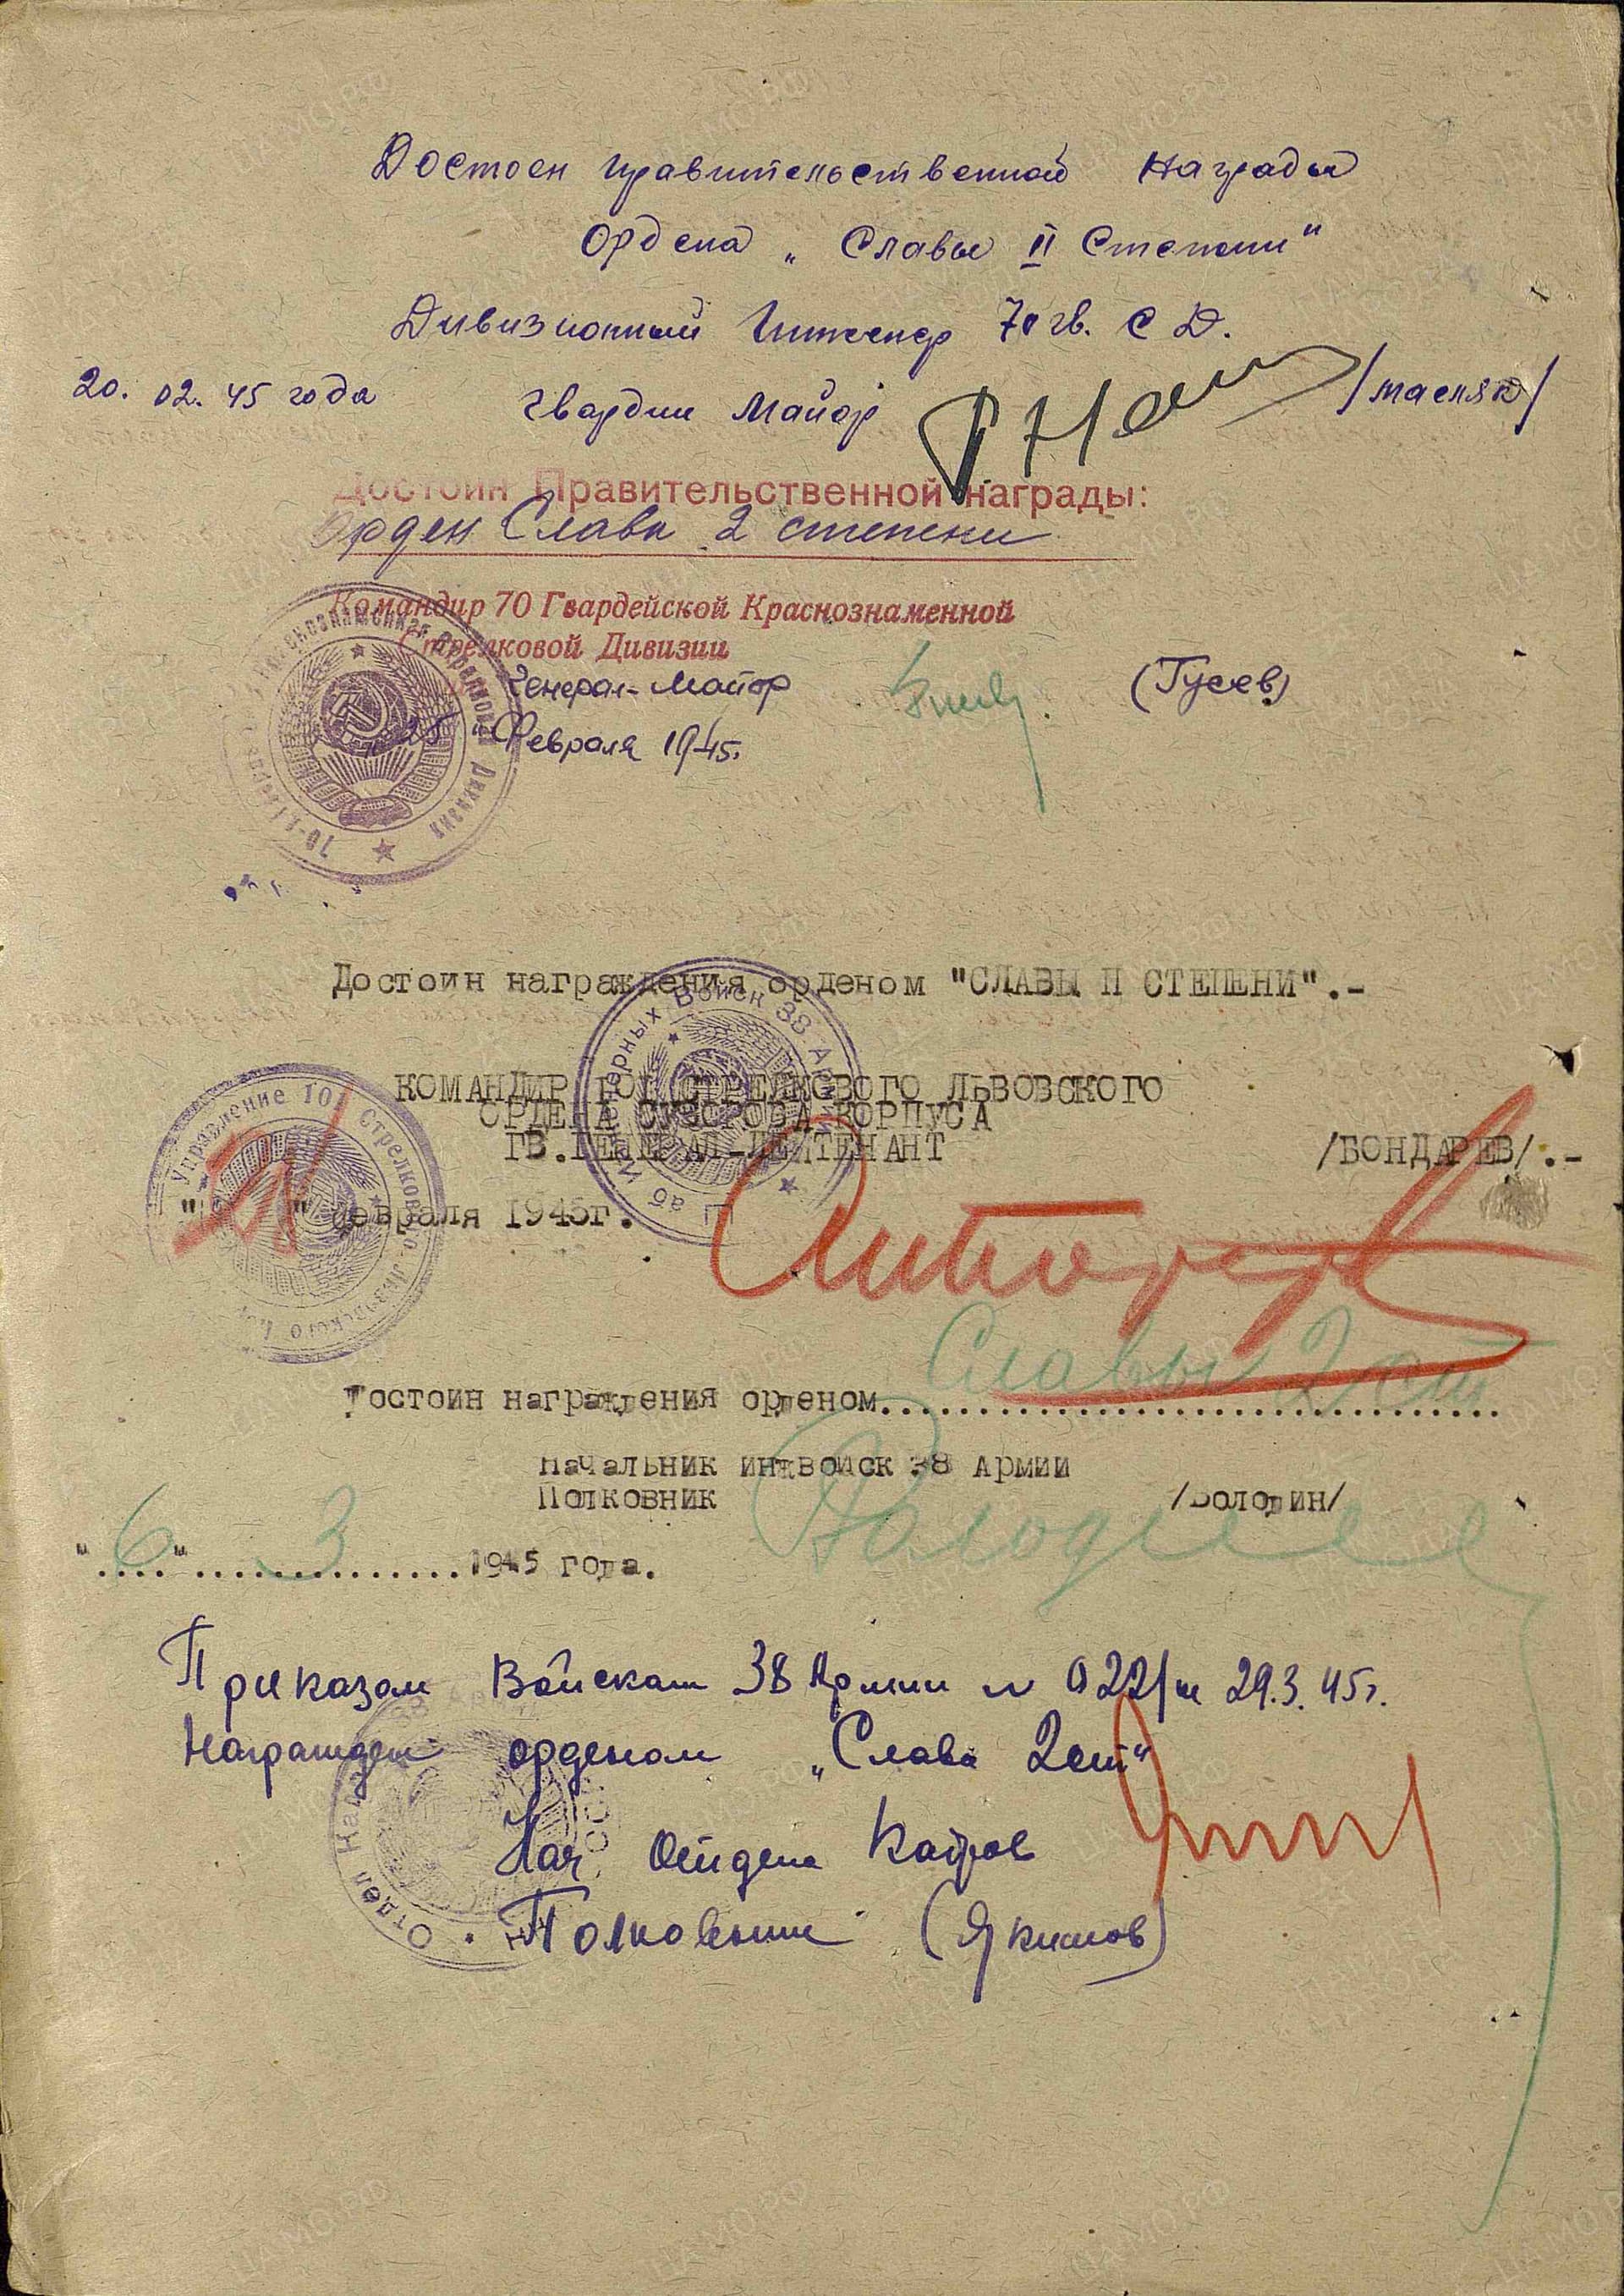 Достоен правительственной награды
Ордена „Славы II Степени"
Дивизионный Инженер 70 гв. С Д.
20. 02. 45 года гвардии Майор /Масляк/
Достоин Правительственной награды:
Орден Слава 2 степени
Командир 70 Гвардейской Краснознаменной
Стрелковой Дивизии
Генерал-Майор (Гусев)
„25" Февраля 1945.
Достоин награждения орденом "СЛАВЫ II СТЕПЕНИ".-
КОМАНДИР 101 СТРЕЛКОВОГО ЛЬВОВСКОГО
ОРДЕНА СУВОРОВА КОРПУСА
ГВ.ГЕНЕРАЛ-ЛЕЙТЕНАНТ /БОНДАРЕВ/.-
" " февраля 1945г.
Славы 2 ст
Достоин награждения орденом..........
Начальник инжвойск 38 Армии
Полковник /Володин/
"6" 3 1945 года.
Приказом Войскам 38 Армии № 022/н 29.3.45г.
Награжден орденом „Слава 2 ст"
Нач Отдела Кадров
Полковник (Якимов)